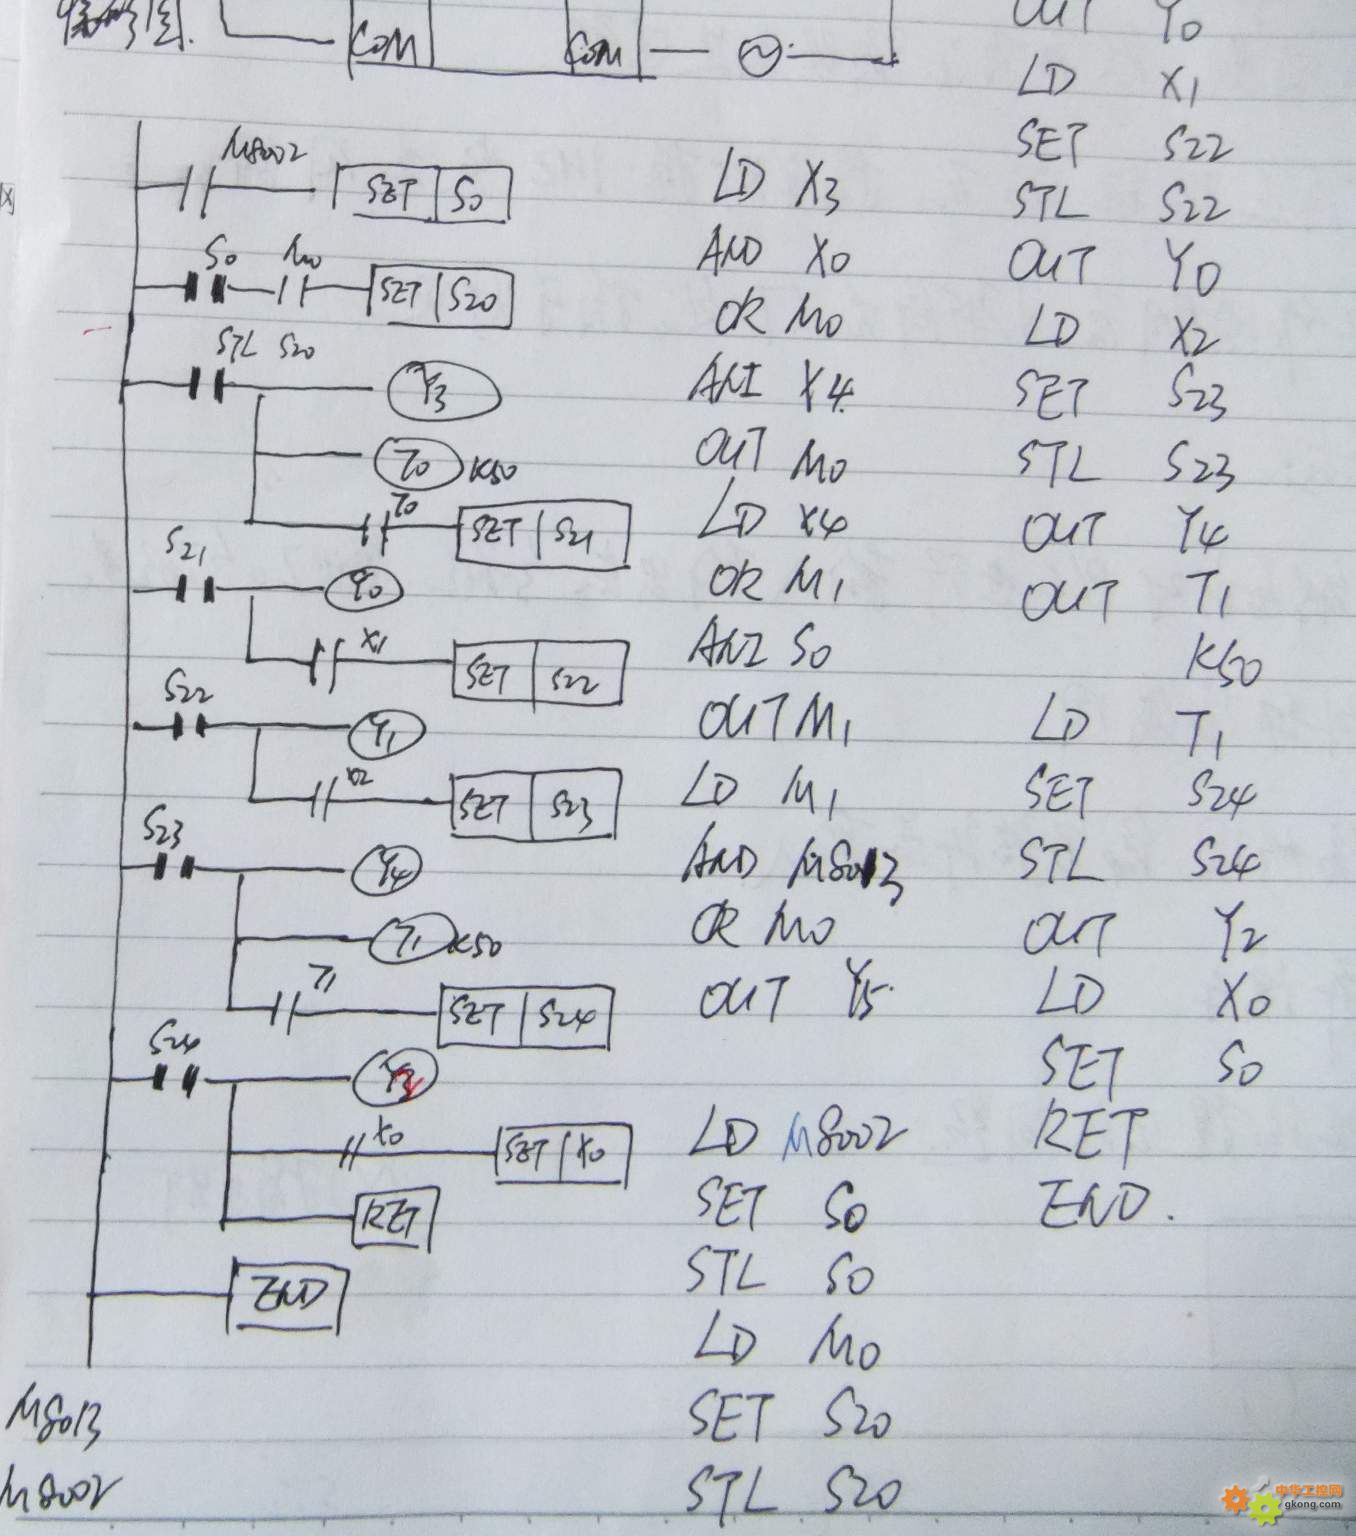 COM
COM
M8002
SET S0
S0 M0
SET S20
STL S20
Y3
T0 K50
T0
SET S21
S21
Y0
X1
SET S22
S22
Y1
X2
SET S23
S23
Y4
T1 K50
T1
SET S24
S24
X0
SET X0
RET
END
M8013
M8002
LD X3
AND X0
OR M0
ANI X4
OUT M0
LD X4
OR M1
ANI S0
OUT M1
LD M1
AND M8013
OR M0
OUT Y5
LD M8002
SET S0
STL S0
LD M0
SET S20
STL S20
OUT Y0
LD X1
SET S22
STL S22
OUT Y0
LD X2
SET S23
STL S23
OUT Y4
OUT T1
K50
LD T1
SET S24
STL S24
OUT Y2
LD X0
SET S0
RET
END.
中华工控网
gkong.com